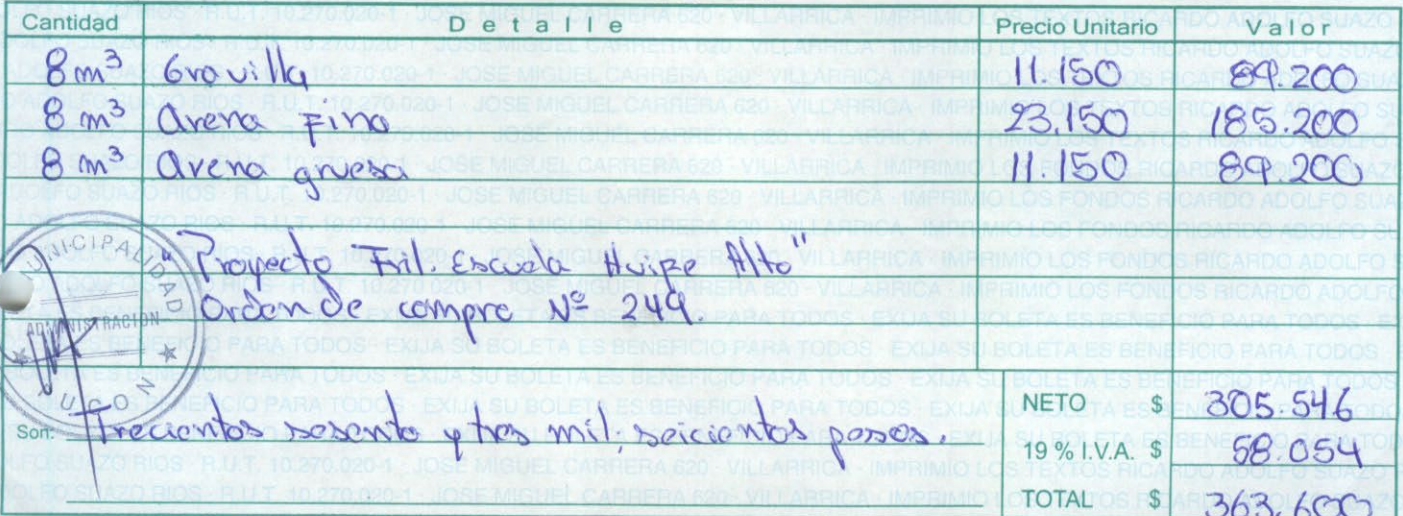 Cantidad Detalle Precio Unitario Valor
8 m³ Gravilla 11.150 89.200
8 m³ Arena Fina 23.150 185.200
8 m³ Arena gruesa 11.150 89.200
"Proyecto Esc. Huife Alto"
Orden de compra Nº 249.
ADMINISTRACION
NETO $ 305.546
Son: Trecientos sesenta y tres mil seicientos pesos.
19 % I.V.A. $ 58.054
TOTAL $ 363.600